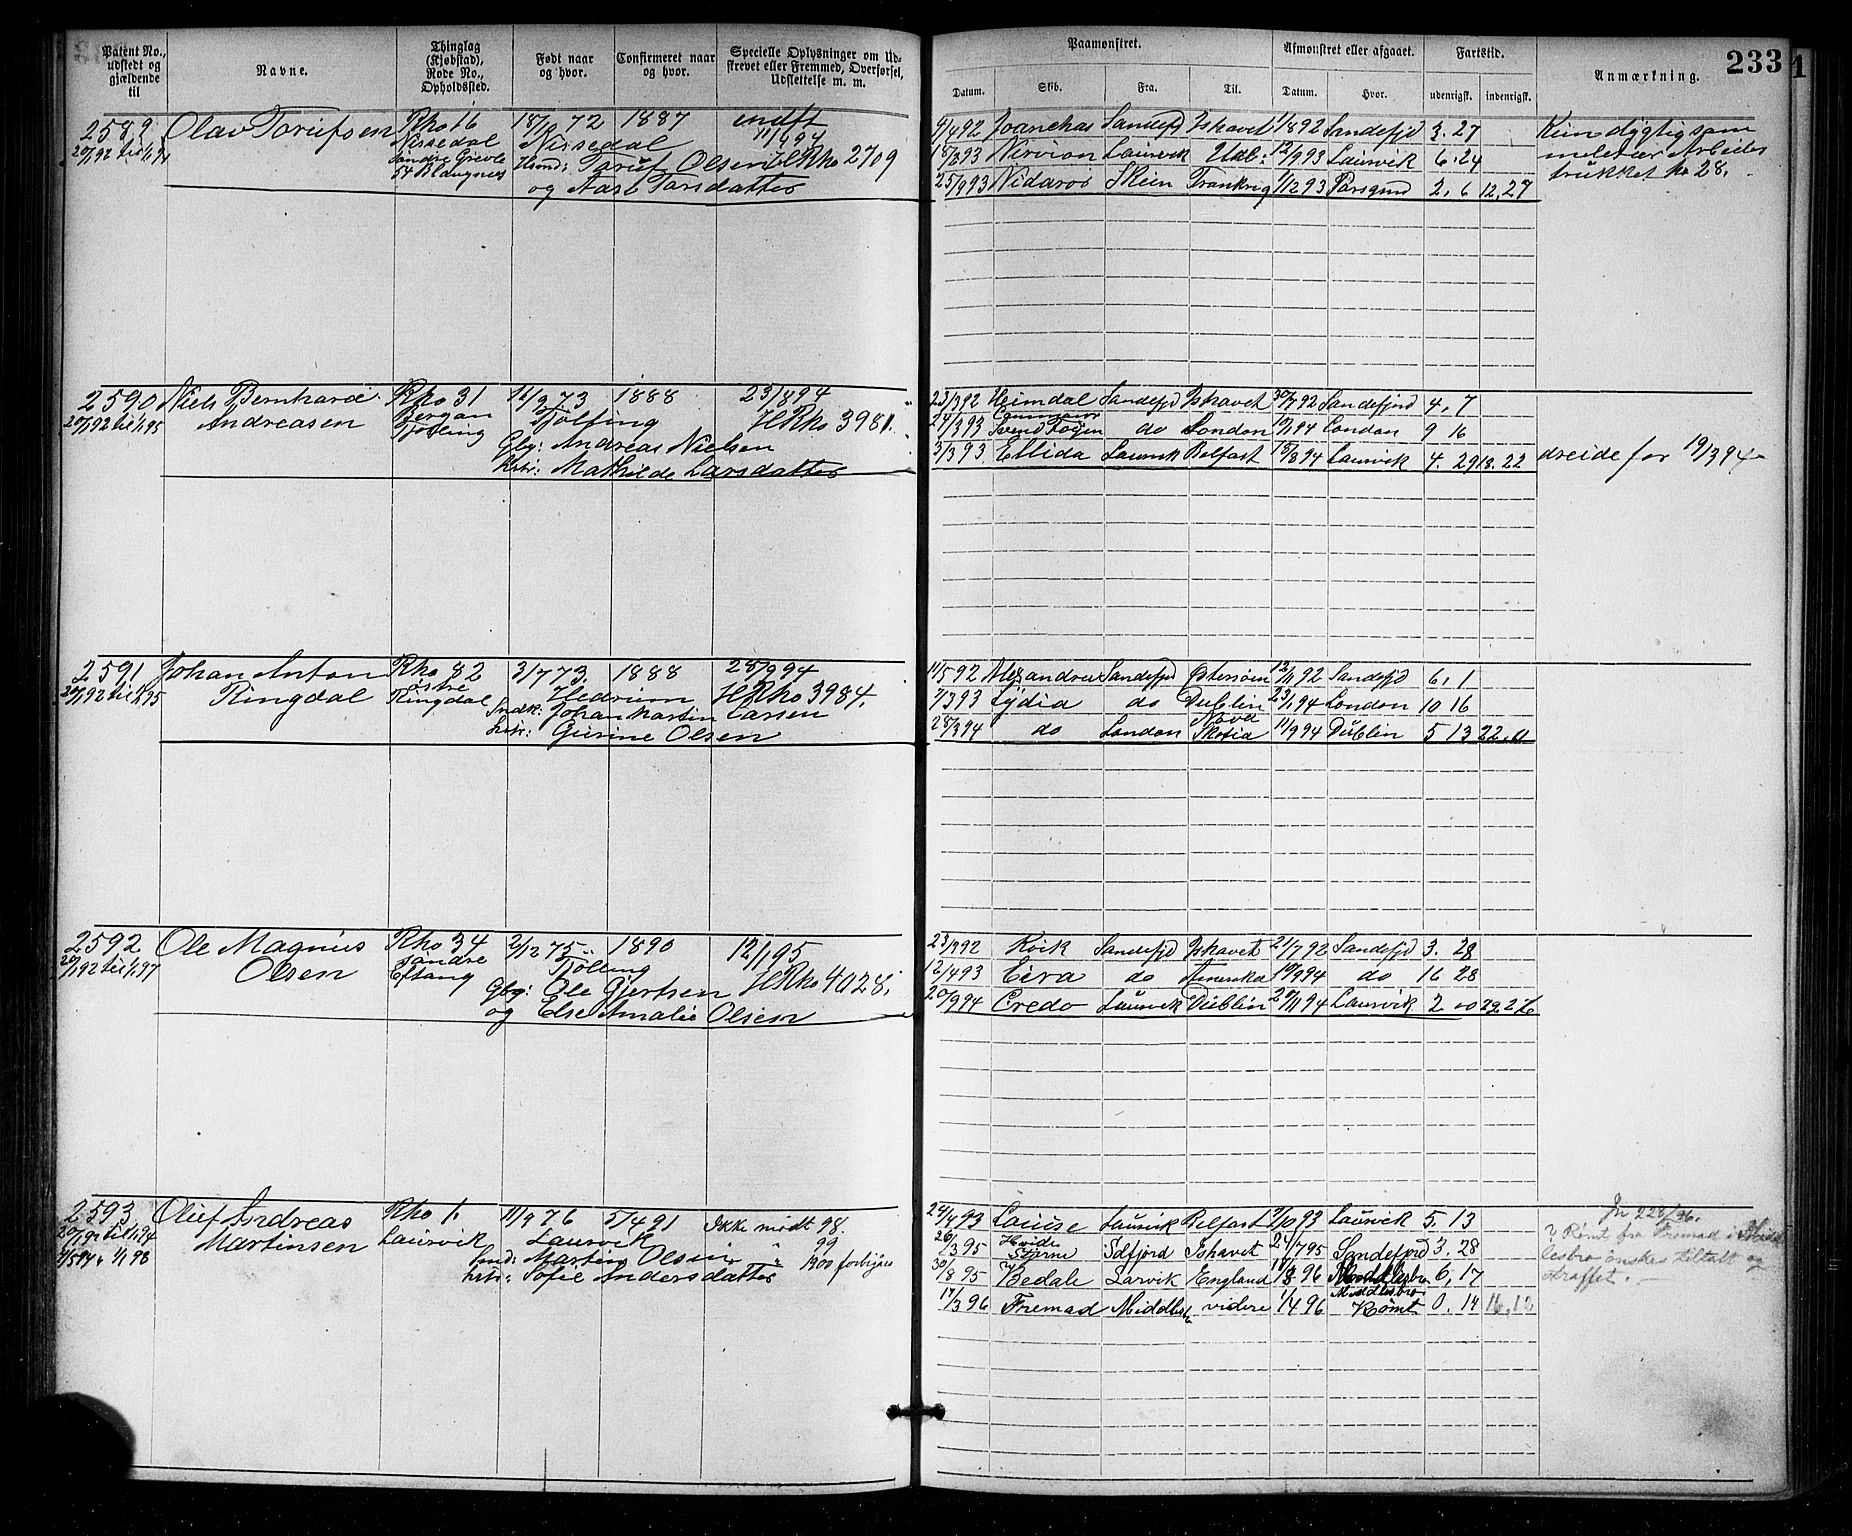 233
1
Patent No., udstedt og gjældende til
Navne.
Thinglag (Kjøbstad), Rode No., Opholdssted.
Født naar og hvor.
Confirmeret naar og hvor.
Specielle Oplysninger om Udskrevet eller Fremmed, Overførsel, Udslettelse m. m.
Paamønstret.
Afmønstret eller afgaaet.
Fartstid.
Anmærkning.
Datum.
Skib.
Fra.
Til.
Datum.
Hvor.
udenrigsk.
indenrigsk.
2589 Olav Torufsen Rho 16 18/10 72 1887
20/1 92 til 1/1 94 Nissedal Nissedal 11/4 94
Søndre Hsmd: Toruf Olsen Rho 2709
og Aase Torsdatter
4/4 92 Sandefjd Ishavet 1/8 92 Sandefjd 3. 27 Kun dygtig som
18/2 93 Laurvik 12/9 93 Laurvik 6. 24 militær Arbeider
25/9 93 Nidaros Skien 1/12 93 Porsgrund 2, 6 12, 27 trukket No 28.
2590 Niels Bernhard Rho 31 16/9 73 1888 23/4 94
20/1 92 til 1/1 95 Andreasen Bergan Tjølling HRho 3981.
Tjølling Gbg: Andreas Nielsen
Kstr: Mathilde Larsdatter
23/3 92 Heimdal Sandefjd Ishavet 30/7 92 Sandefjord 4, 7
24/1 93 Svend Foyen do London 9/1 94 London 9 16
3/3 93 Ellida Laurvik Belfast 15/3 94 Laurvik 4. 29 18. 22 dreide for 19/3 94
2591 Johan Anton Rho 82 3/7 73. 1888 28/9 94
20/1 92 til 1/1 95 Ringdal Østre Hedrum HRho 3984.
Ringdal Indk: Johan Martin Larsen
Kstr: Gurine Olsen
11/5 92 Alexandra Sandefjd Østersøen 12/11 92 Sandefjd 6, 1
7/3 93 Lydia do Dublin 23/1 94 London 10 16
28/3 94 do London Nova Skotia 11/9 94 Dublin 5 13 22. 0
2592 Ole Magnus Rho 34 2/12 75. 1890 12/1 95
20/1 92 til 1/1 97 Olsen Søndre Tjølling HRho 4028.
Eftang Gbg: Ole Gjertsen
og Else Amalie Olsen
23/3 92 Kvik Sandefjd Ishavet 21/7 92 Sandefjd 3. 28
12/4 93 Eira do Amerika 10/9 94 do 16 28
20/9 94 Credo Laurvik Dublin 20/11 94 Laurvik 2 00 22 26
2593 Oluf Andreas Rho 1. 11/9 76 5/4 91 Ikke mødt 98.
20/1 92 til 1/1 94 Martinsen Laurvik Laurvik " " 99
1/1 98 Smd: Martin Olsen " " 1900 forbigaaes
Kstr: Sofie Andersdatter
24/4 93 Louise Laurvik Belfast 7/10 93 Laurvik 5. 13 Jn 228/96.
26/3 95 Hvide Stjerne Sdfjord Ishavet 24/7 95 Sandefjord 3. 28 Rømt fra Fremad i Middlesbro
30/8 95 Bedale Larvik England 17/3 96 Middlesbro 6, 17 ønskes tiltalt og straffet.
17/3 96 Fremad Middlesb videre 1/4 96 Middlesbro Rømt 0. 14 16, 12